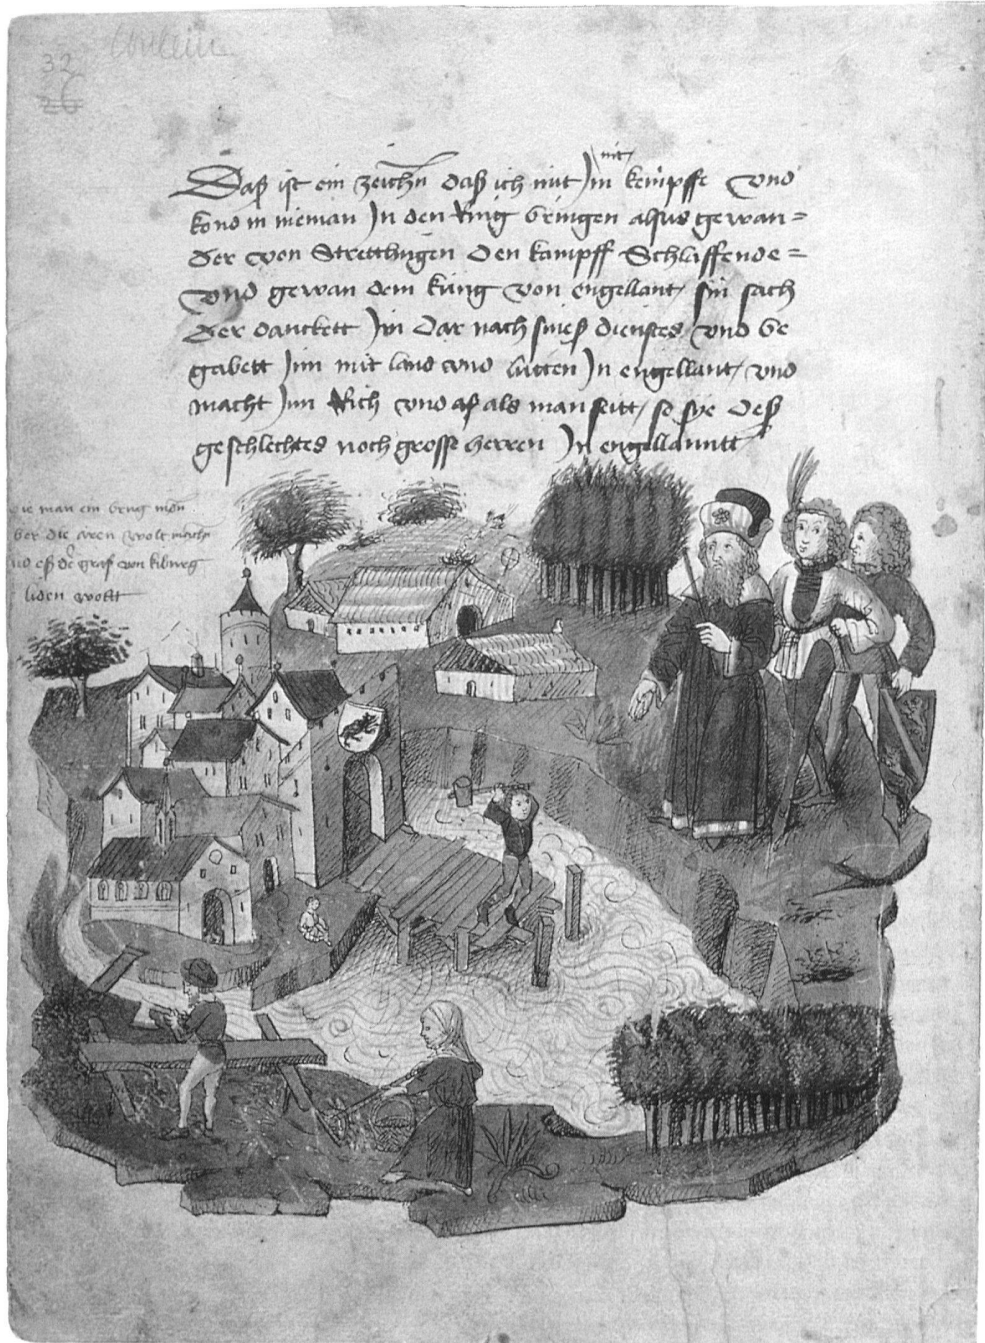 32
26
Daß ist ein zeichen daß ich mit Im nit kempffe vnd
kond in nieman In den Ring bringen alsus gewan=
der von Stretthigen den kampff Schlaffende=
vnd gewan dem küng von engellant sin sach
der danckett Im Dar nach sines dienstes vnd be
gabett Inn mit land vnd lütten In engellant vnd
macht Inn Rich vnd als man seitt so sye deß
geschlechtes noch grosse herren In engellanntt
wie man ein brug
ber die aren wolt machen
von kiburg
liden wollt